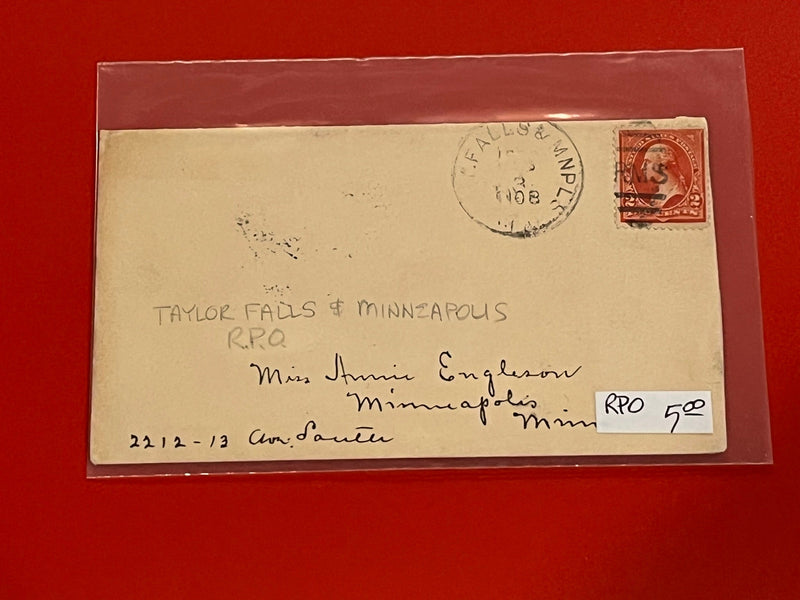 .FALLS & MNPLS
8
1908
RMS
TAYLOR FALLS & MINNEAPOLIS
R.P.O.
Miss Annie Engleson
Minneapolis
Minn
2212-13 Ave. South
RPO 5.00